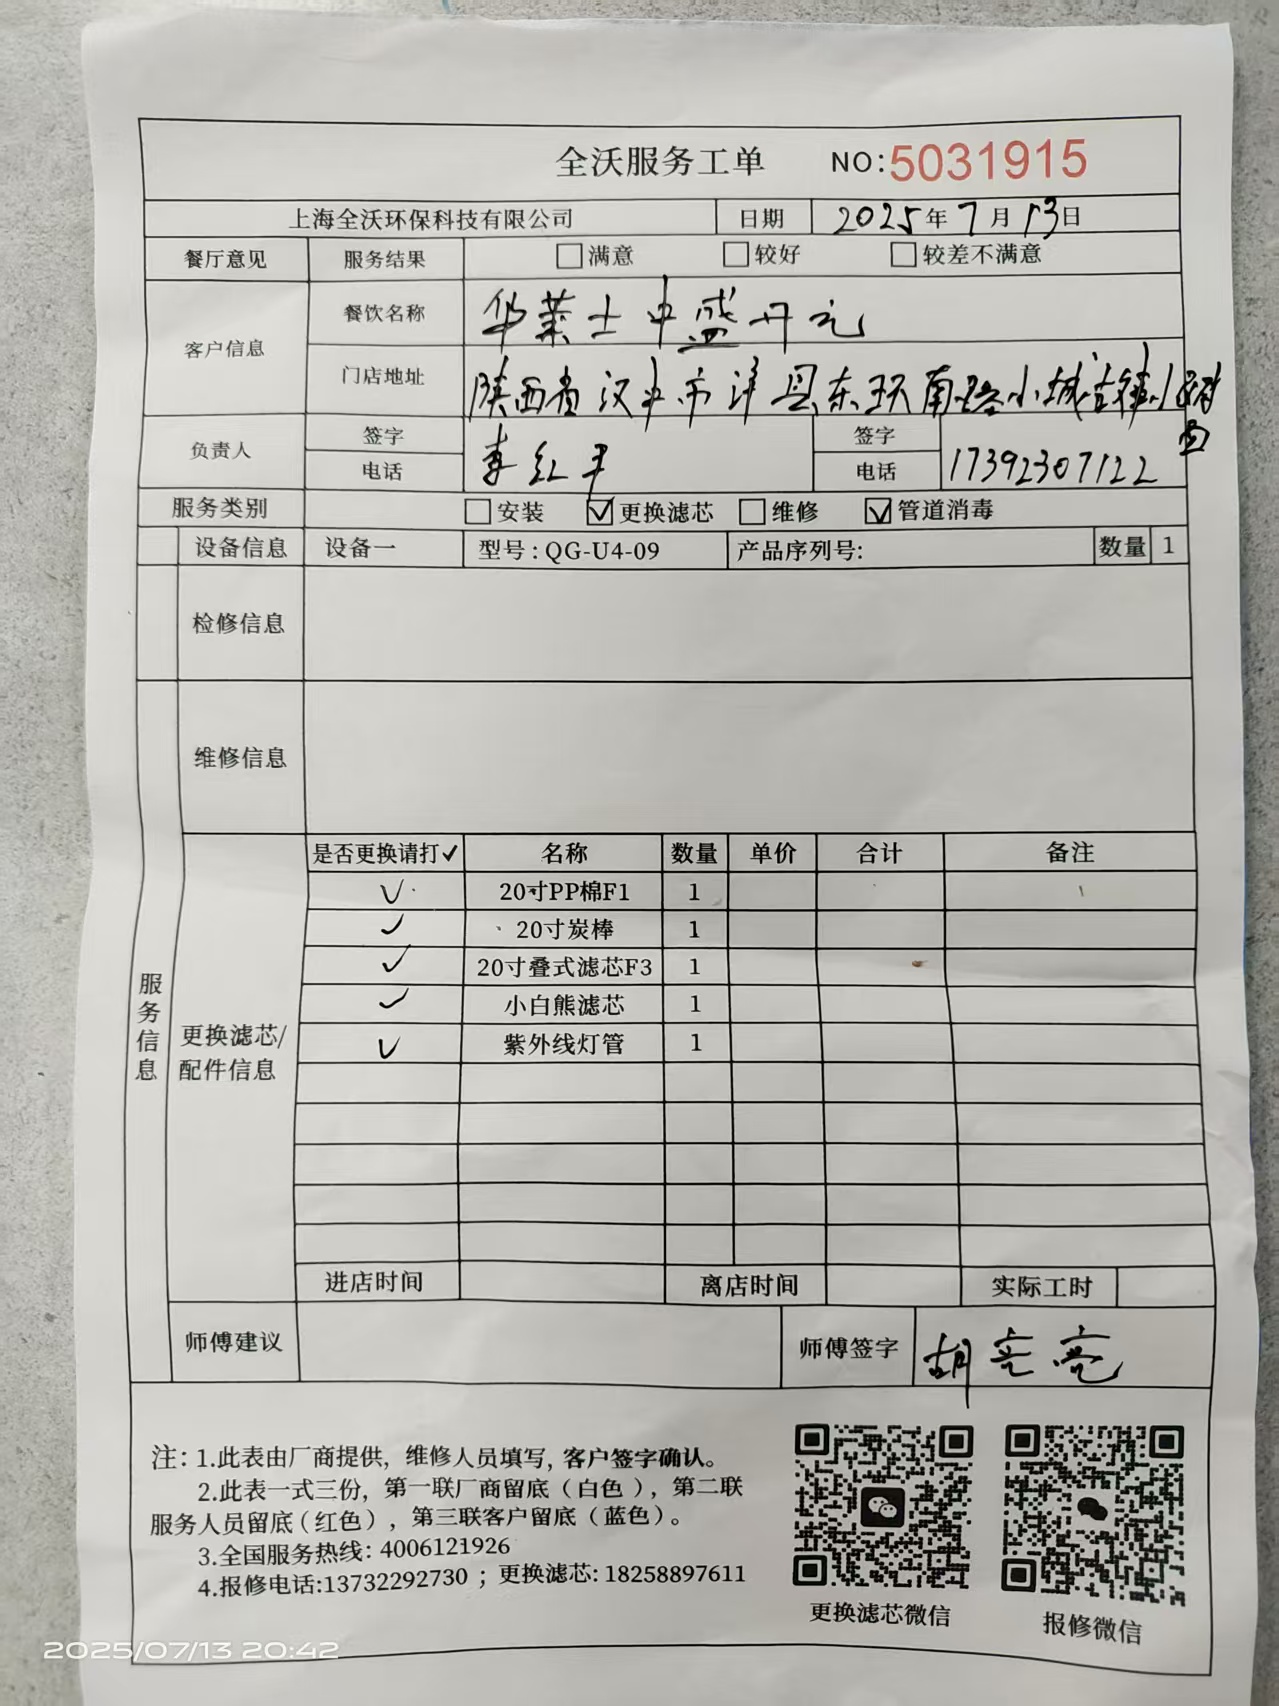 全沃服务工单 NO:5031915
上海全沃环保科技有限公司 日期 2025年7月13日
餐厅意见 服务结果 满意 较好 较差不满意
客户信息 餐饮名称 华莱士中盛开元
门店地址 陕西省汉中市洋县东环南路小城古镇
负责人 签字 李红 签字
电话 电话 17392307122
服务类别 安装 ✓更换滤芯 维修 ✓管道消毒
设备信息 设备一 型号:QG-U4-09 产品序列号: 数量 1
检修信息
维修信息
服务信息
更换滤芯/
配件信息
是否更换请打✓ 名称 数量 单价 合计 备注
✓ 20寸PP棉F1 1
✓ 20寸炭棒 1
✓ 20寸叠式滤芯F3 1
✓ 小白熊滤芯 1
✓ 紫外线灯管 1
进店时间 离店时间 实际工时
师傅建议 师傅签字 胡亮亮
注:1.此表由厂商提供,维修人员填写,客户签字确认。
2.此表一式三份,第一联厂商留底(白色),第二联
服务人员留底(红色),第三联客户留底(蓝色)。
3.全国服务热线:4006121926
4.报修电话:13732292730;更换滤芯:18258897611
更换滤芯微信 报修微信
2025/07/13 20:42